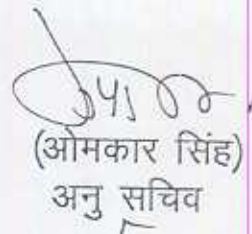 (ओमकार सिंह)
अनु सचिव